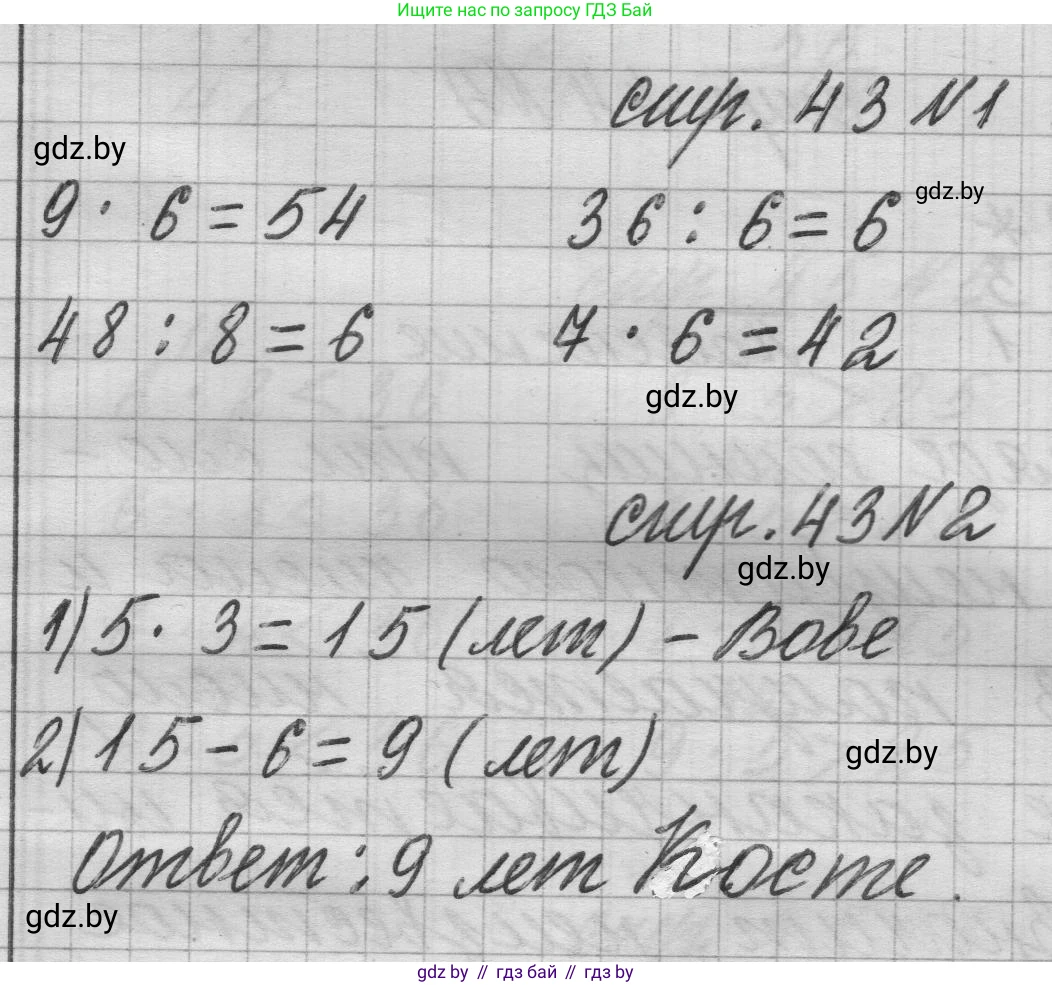 Ищите нас по запросу ГДЗ Бай
стр. 43 №1
gdz.by
9 · 6 = 54 36 : 6 = 6 gdz.by
48 : 8 = 6 7 · 6 = 42
gdz.by
стр. 43 №2
gdz.by
1) 5 · 3 = 15 (лет) – Вове
2) 15 – 6 = 9 (лет)
gdz.by
Ответ : 9 лет Косте .
gdz.by
gdz by // гдз бай // гдз by